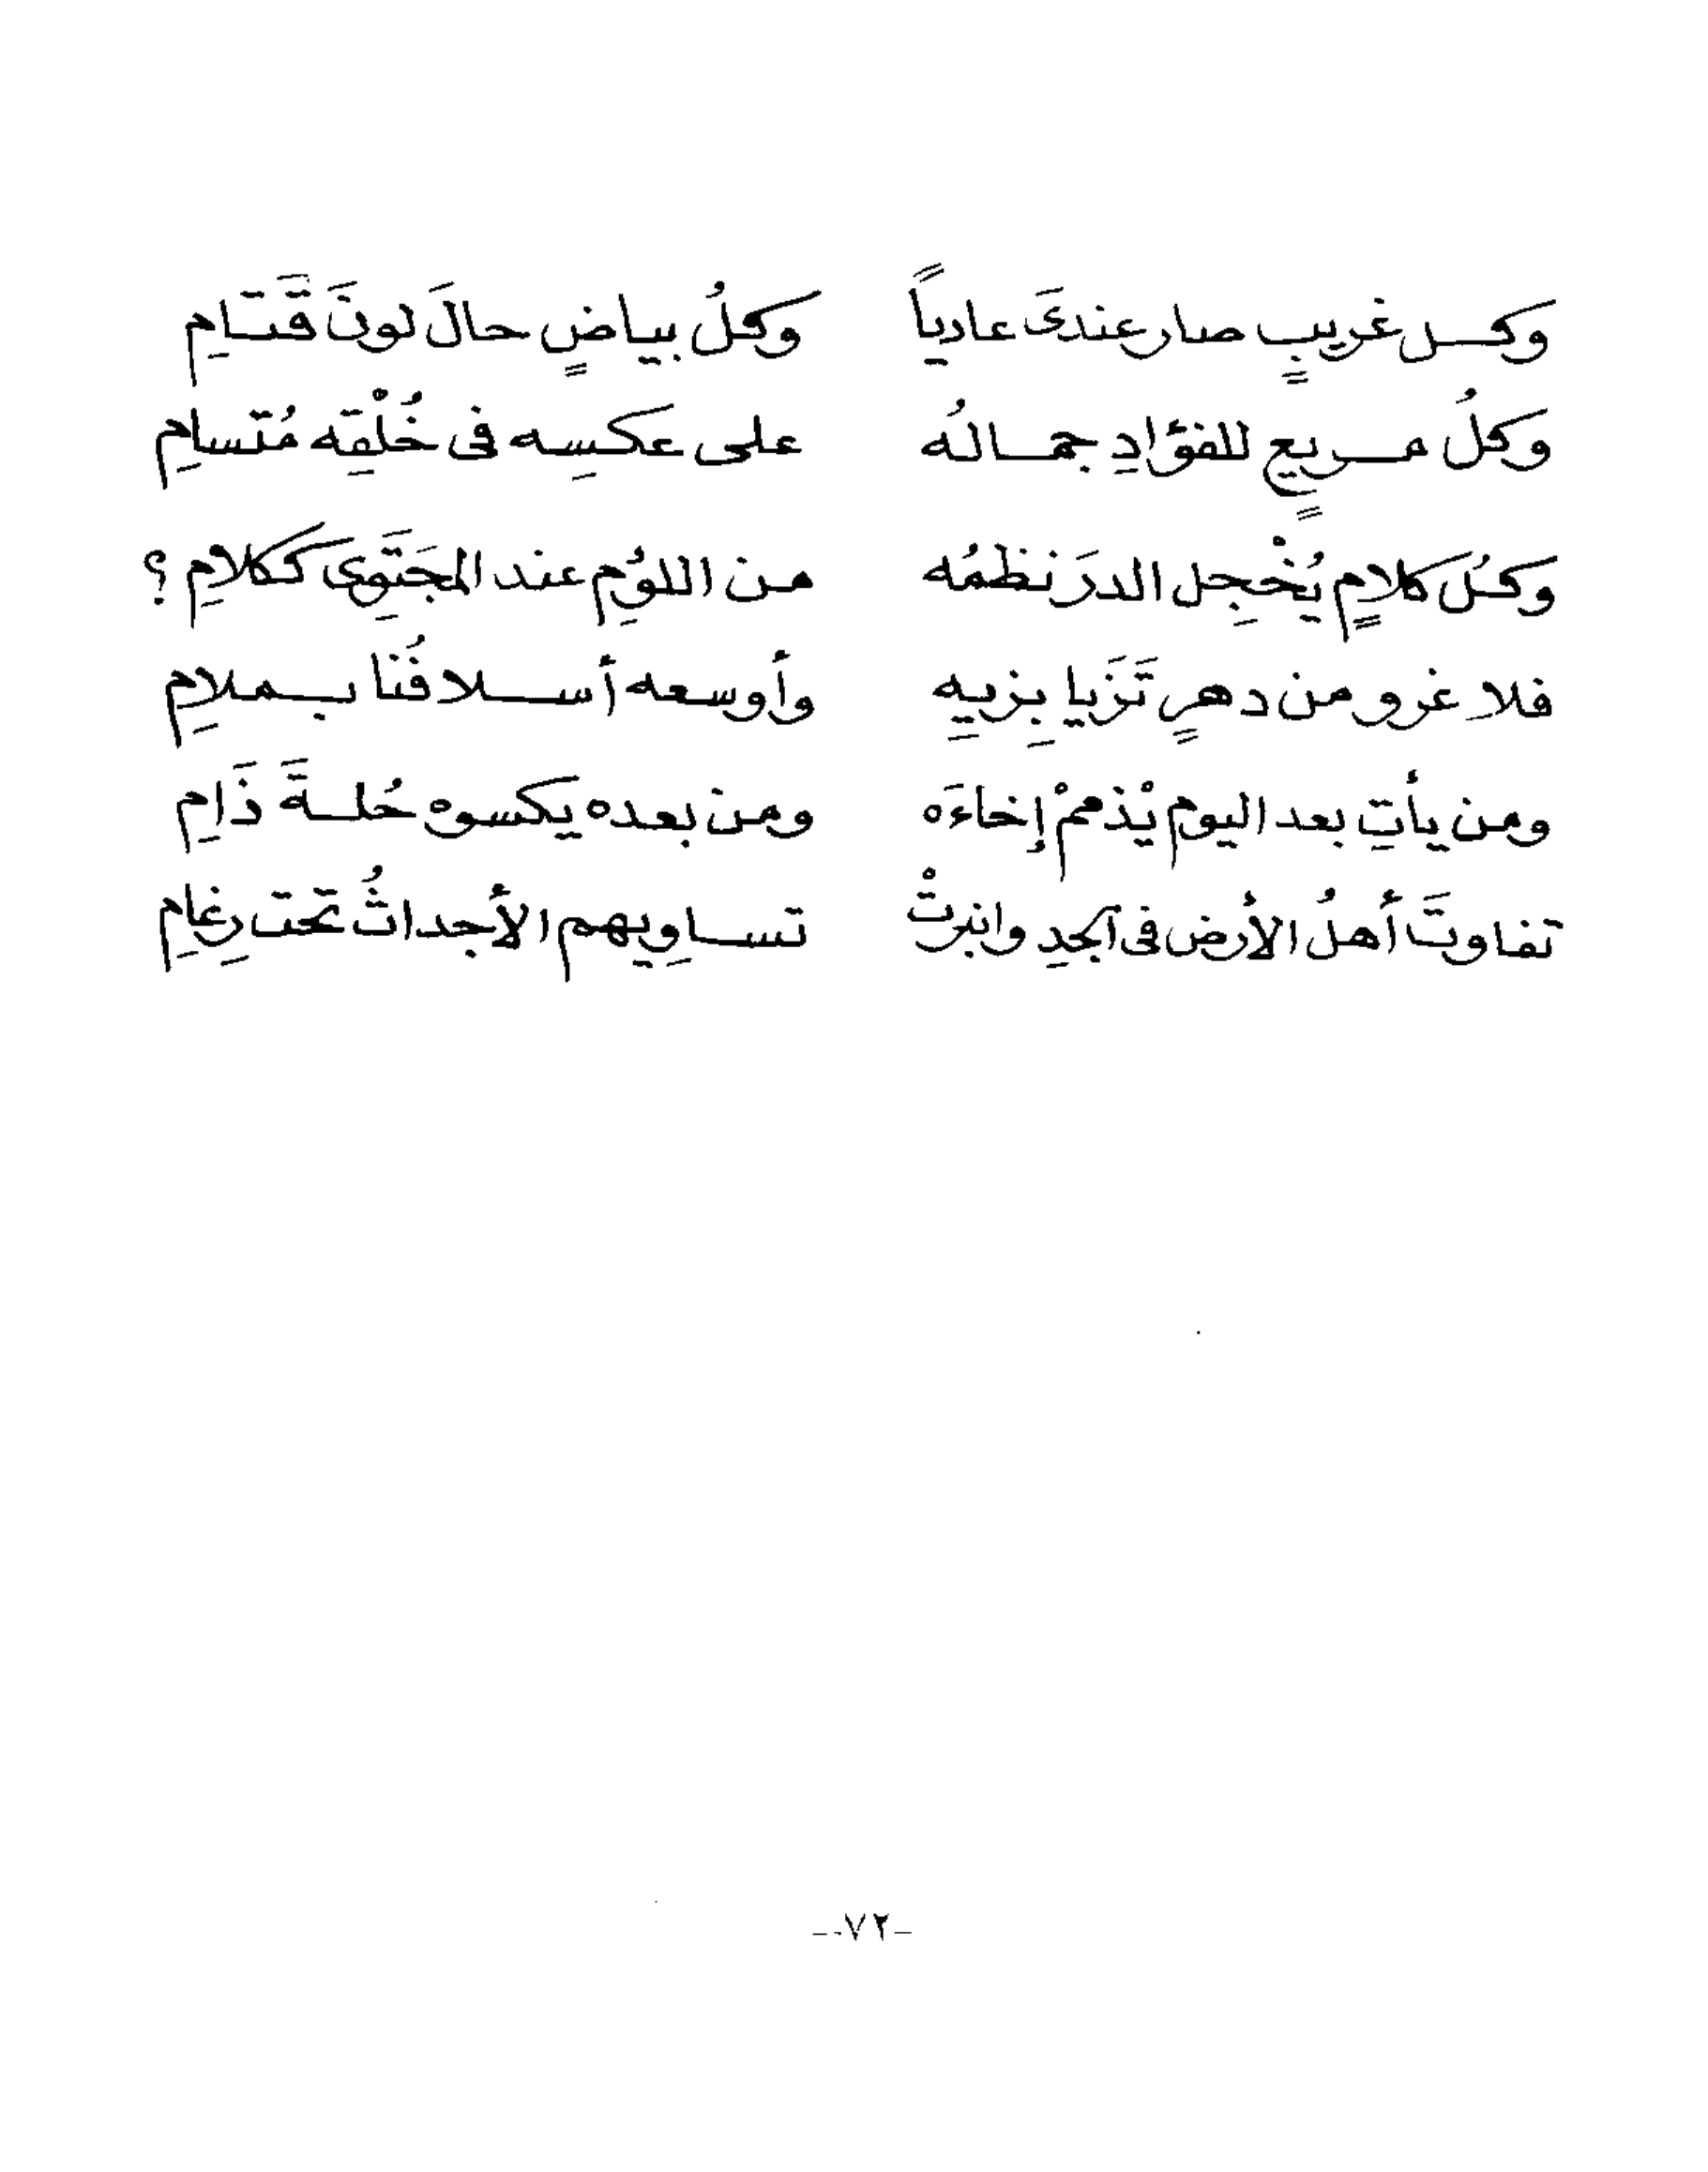 وكل غريبٍ صار عندىَ عادياً وكلُ بياضٍ حالَ لونَ قَتَامِ
وكلُ مريعٍ للفؤادِ جمالُه على عكسِه فى خُلْقِه مُتسامِ
وكلُ كلامٍ يُخْجِل الدرَ نظمُه من اللؤمِ عند المجتَوِى ككلامِ ؟
فلا غرو من دهرٍ تَزَيا بِزيهِ وأوسعه أسلافُنا بملامِ
ومن يأتِ بعد اليوم يْذممْ إخاءَه ومن بعده يكسوه حُلةَ ذَامِ
تفاوتَ أهلُ الأرض فى الجدِ وانبرتْ تساوِيهم الأجداثُ تحت رِغامِ
-٧٢-